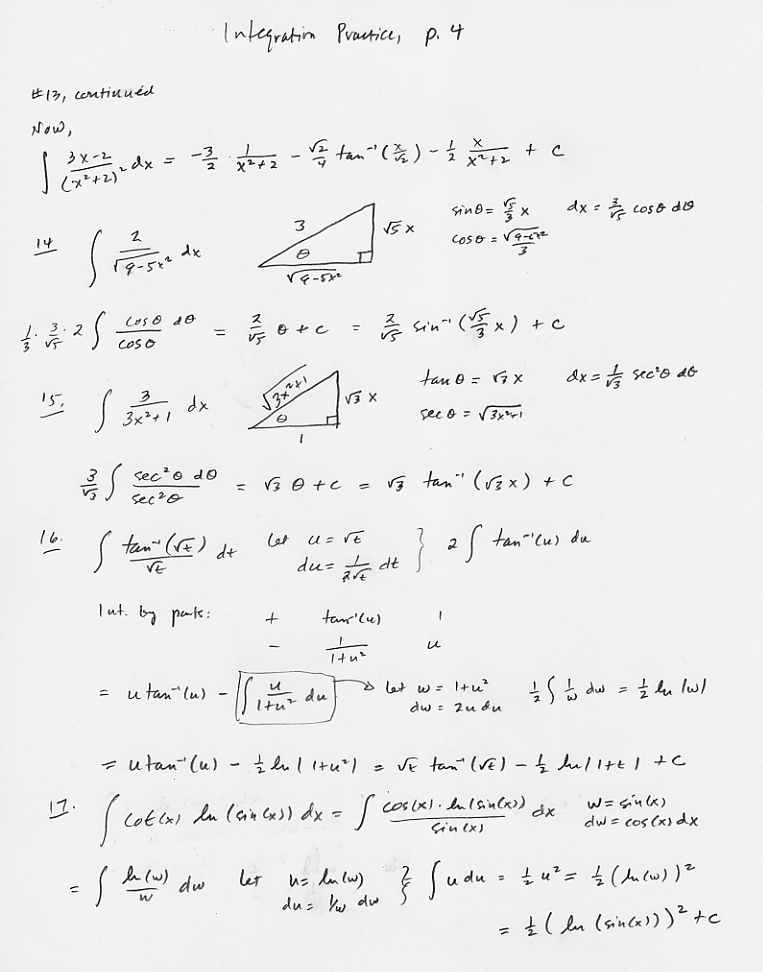 Integration Practice, p. 4
#13, continued
Now,
∫ (3x-2)/(x²+2)² dx = -3/2 · 1/(x²+2) - √2/4 tan⁻¹(x/√2) - 1/2 x/(x²+2) + C
14 ∫ 2/√(9-5x²) dx 3 θ √5 x √(9-5x²) sinθ = √5/3 x dx = 3/√5 cosθ dθ
cosθ = √(9-5x²)/3
1/3 · 3/√5 · 2 ∫ cosθ dθ/cosθ = 2/√5 θ + C = 2/√5 sin⁻¹(√5/3 x) + C
15. ∫ 3/(3x²+1) dx √(3x²+1) θ √3 x 1 tanθ = √3 x dx = 1/√3 sec²θ dθ
secθ = √(3x²+1)
3/√3 ∫ sec²θ dθ/sec²θ = √3 θ + C = √3 tan⁻¹(√3 x) + C
16. ∫ tan⁻¹(√t)/√t dt Let u = √t } 2 ∫ tan⁻¹(u) du
du = 1/(2√t) dt
Int. by parts: + tan⁻¹(u) 1
- 1/(1+u²) u
= u tan⁻¹(u) - ∫ u/(1+u²) du → let w = 1+u² 1/2 ∫ 1/w dw = 1/2 ln|w|
dw = 2u du
= u tan⁻¹(u) - 1/2 ln|1+u²| = √t tan⁻¹(√t) - 1/2 ln|1+t| + C
17. ∫ cot(x) ln(sin(x)) dx = ∫ cos(x)·ln(sin(x))/sin(x) dx w = sin(x)
dw = cos(x) dx
= ∫ ln(w)/w dw Let u = ln(w) } ∫ u du = 1/2 u² = 1/2 (ln(w))²
du = 1/w dw
= 1/2 (ln(sin(x)))² + C